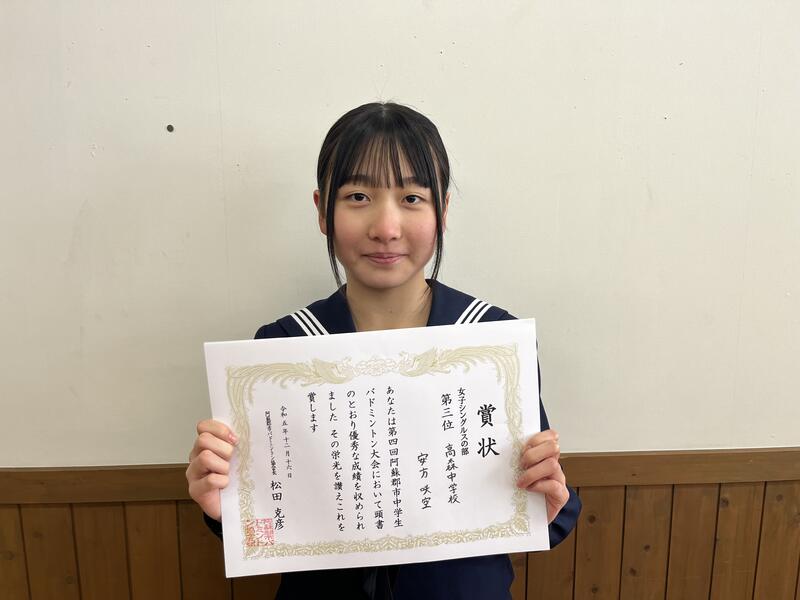 賞状
女子シングルスの部
第三位 高森中学校
安方 咲空
あなたは第四回阿蘇郡市中学生
バドミントン大会において頭書
のとおり優秀な成績を収められ
ました その栄光を讃えこれを
賞します
令和五年十二月十六日
阿蘇郡市バドミントン協会長
松田 克彦